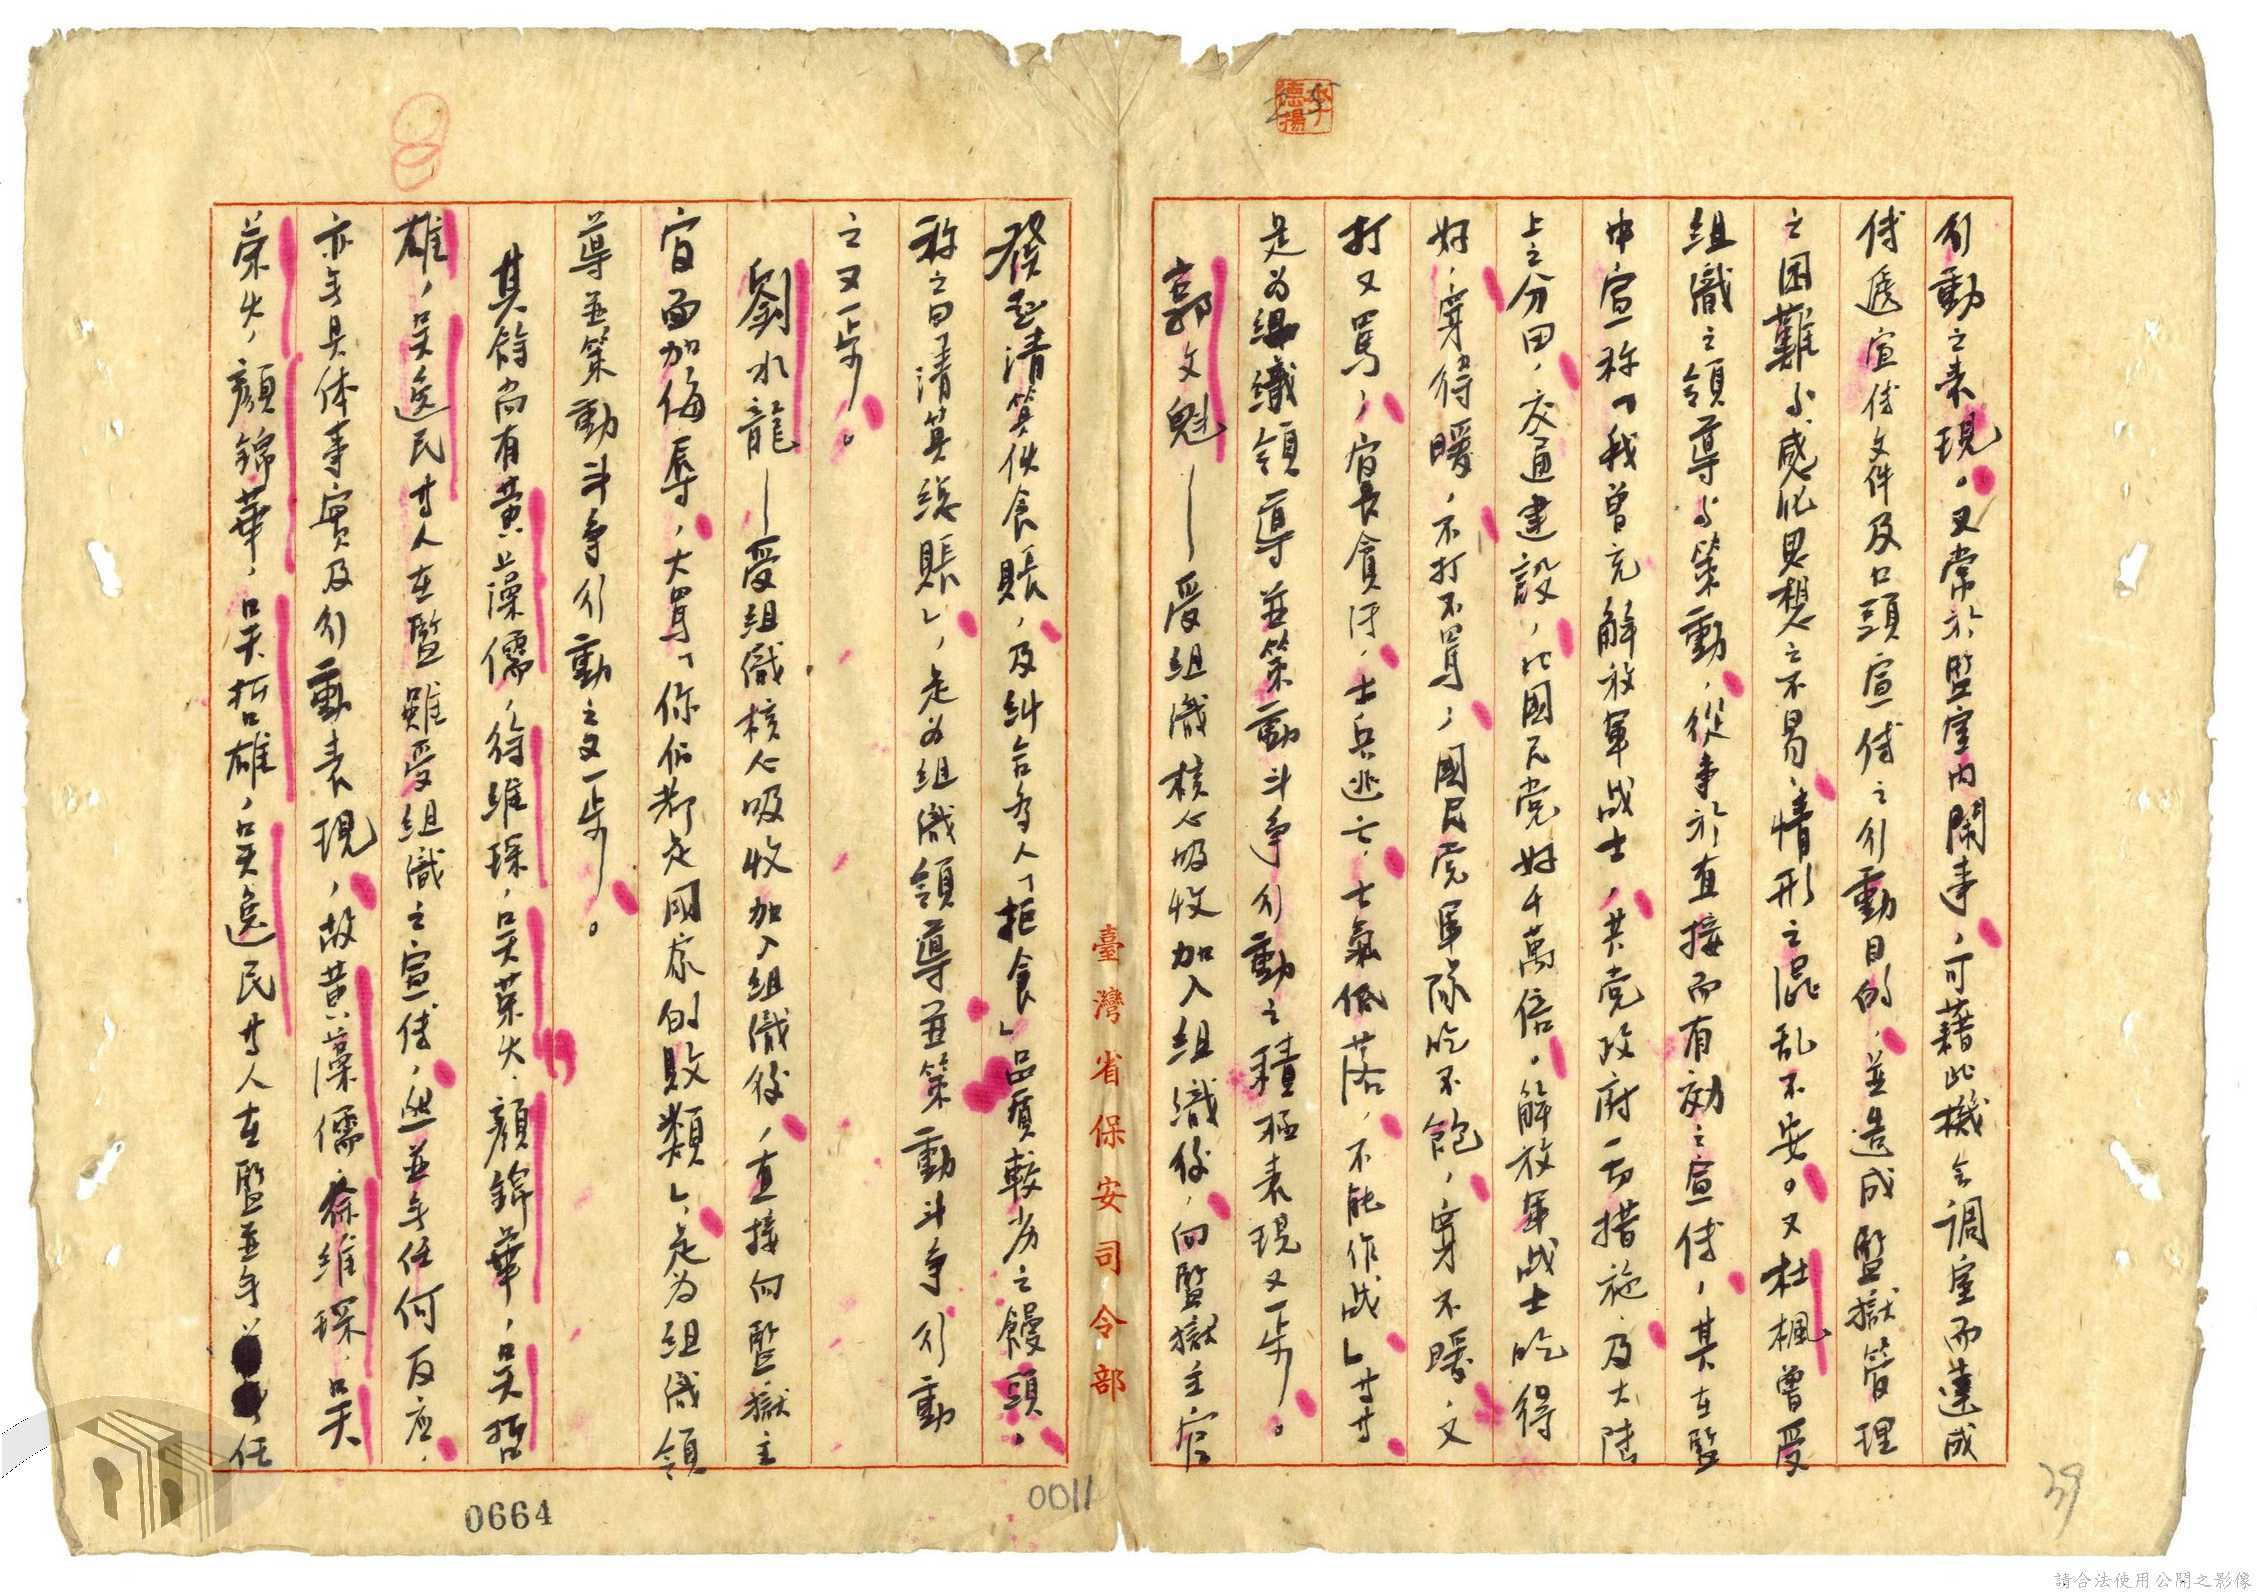 李德揚
行動之表現。又常於監室內鬧事,可藉此機會調室而達成
傳遞宣傳文件及口頭宣傳之行動目的,並造成監獄管理
之困難與感化思想之不易,情形之混乱不安。又杜楓曾受
組織之領導與策動,從事於直接而有効之宣傳,其在監
中宣称「我曾充解放軍战士,共党政府一切措施及大陸
上之分田,交通建設,比國民党好千萬倍。解放軍战士吃得
好,穿得暖,不打不罵,國民党軍隊吃不飽,穿不暖,又
打又罵,官長貪污,士兵逃亡,士氣低落,不能作战」等等
是为組織領導並策動斗争行動之積極表現又一步。
郭文魁——受組織核心吸收加入組織後,向監獄主官
臺灣省保安司令部
發起清算伙食賬,及糾合多人「拒食」品質較劣之饅頭,
称之曰「清算總賬」,是为組織領導並策動斗争行動
之又一步。
劉水龍——受組織核心吸收加入組織後,直接向監獄主
官面加侮辱,大罵「你们都是国家的敗類」,是为組織領
導並策動斗争行動之又一步。
其餘尚有黃藻儒,徐維琛,吳荣火,顏錦華,吳哲
雄,吳逸民等人在監雖受組織之宣傳,但並无任何反应,
亦无具体事實及行動表現,故黃藻儒,徐維琛,吳
荣火,顏錦華,吳哲雄,吳逸民等人在監並无任
0664
0011
39
請合法使用公開之影像